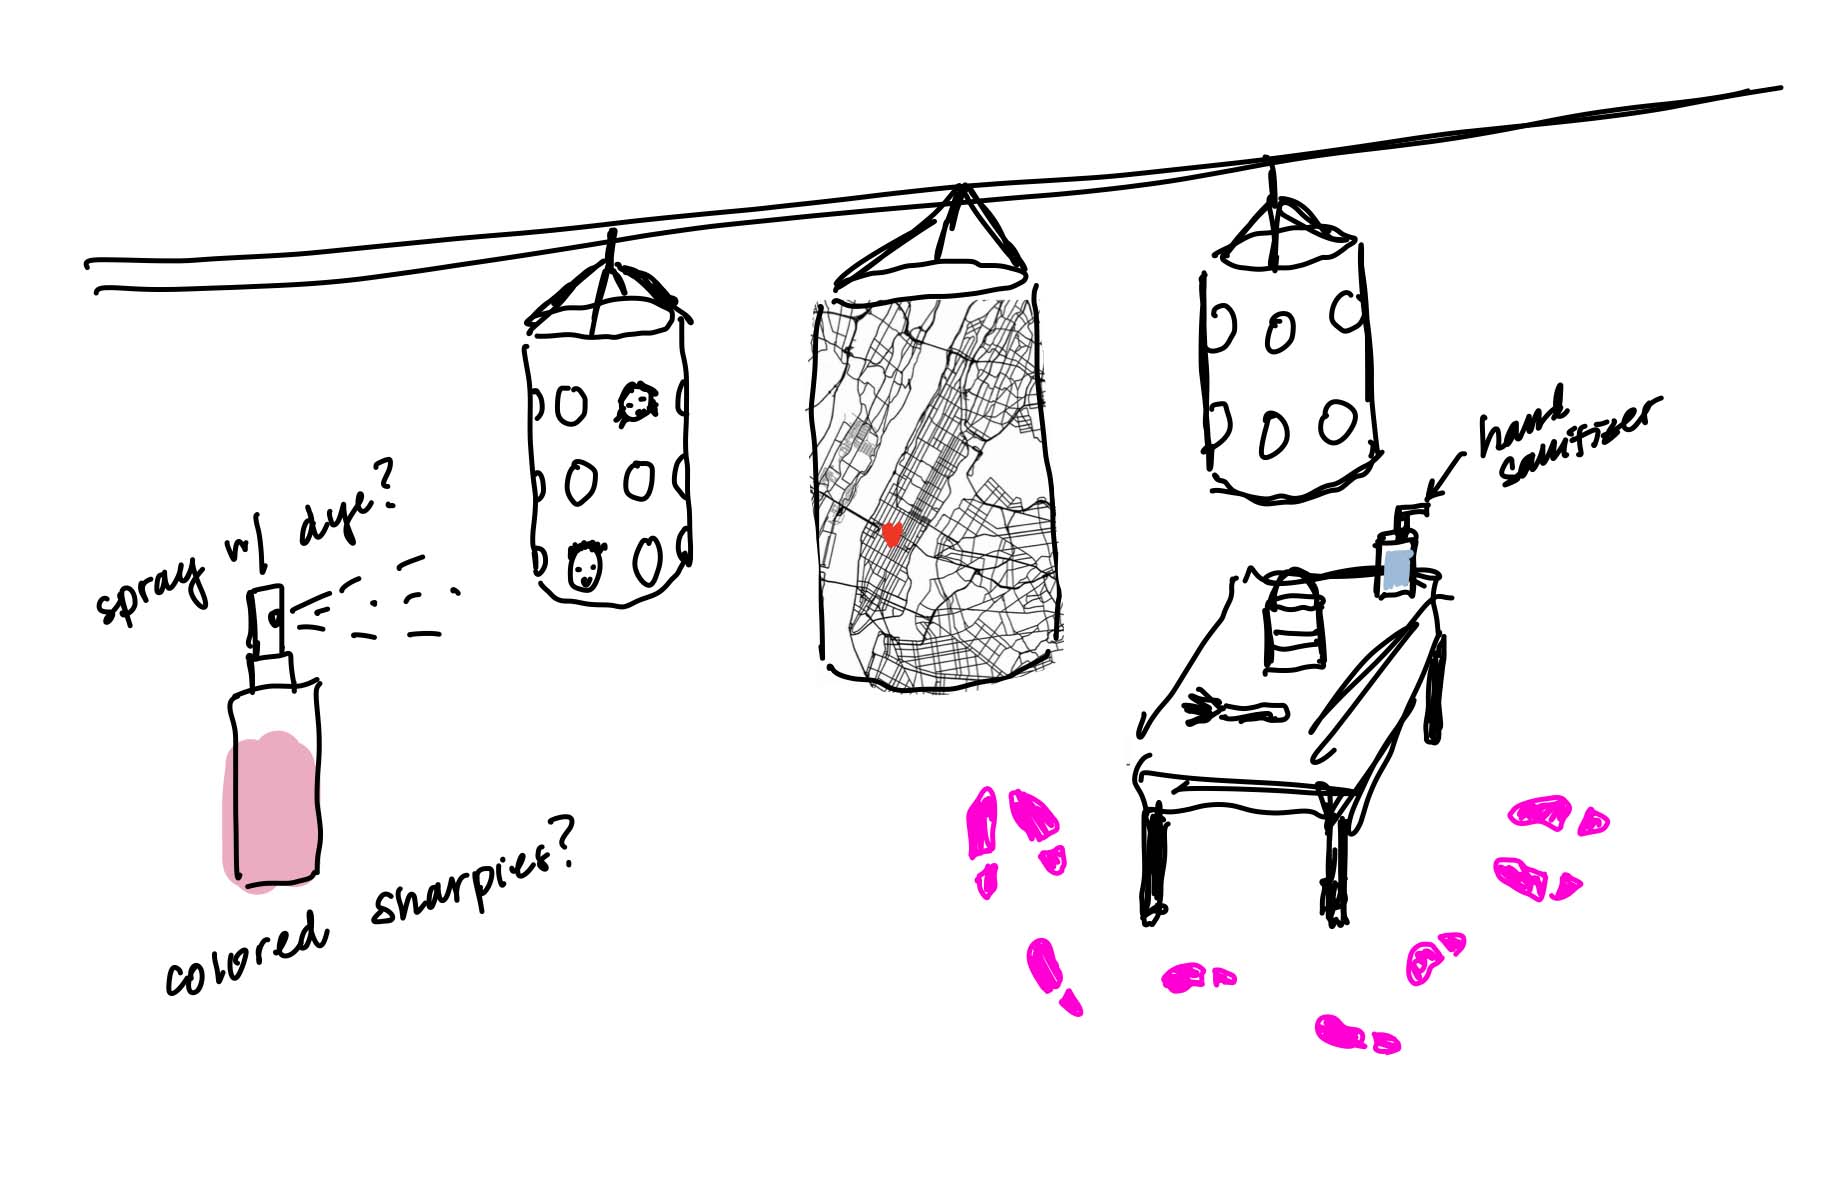 spray w/ dye?
colored sharpies?
hand
sanitizer